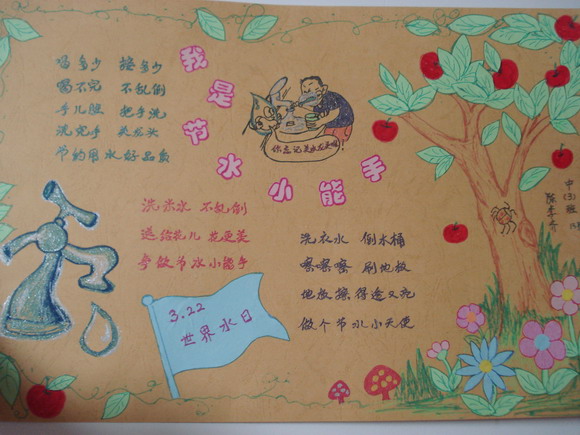 我是节水小能手
喝多少 接多少
喝不完 不乱倒
手儿脏 把手洗
洗完手 关龙头
节约用水好品质
洗米水 不乱倒
送给花儿 花更美
争做节水小能手
3.22
世界水日
洗衣水 倒水桶
嚓嚓嚓 刷地板
地板擦得透又亮
做个节水小天使
中(3)班